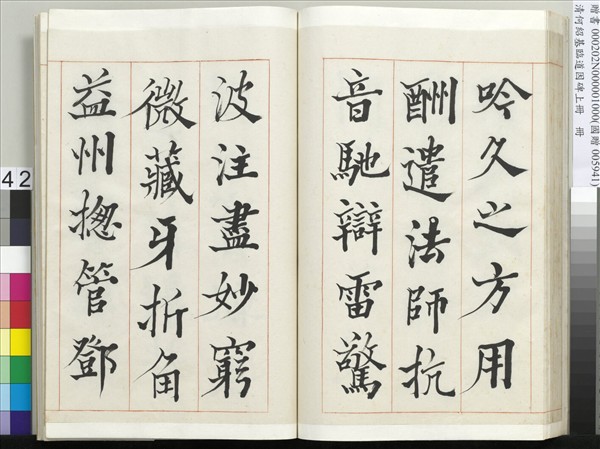 吟久之方用
酬遣法師抗
音馳辯雷驚
波注盡妙窮
微藏牙折角
益州揔管鄧
42
贈書 000202N000001000(國贈 005941)
清何紹基臨道因碑上冊 冊